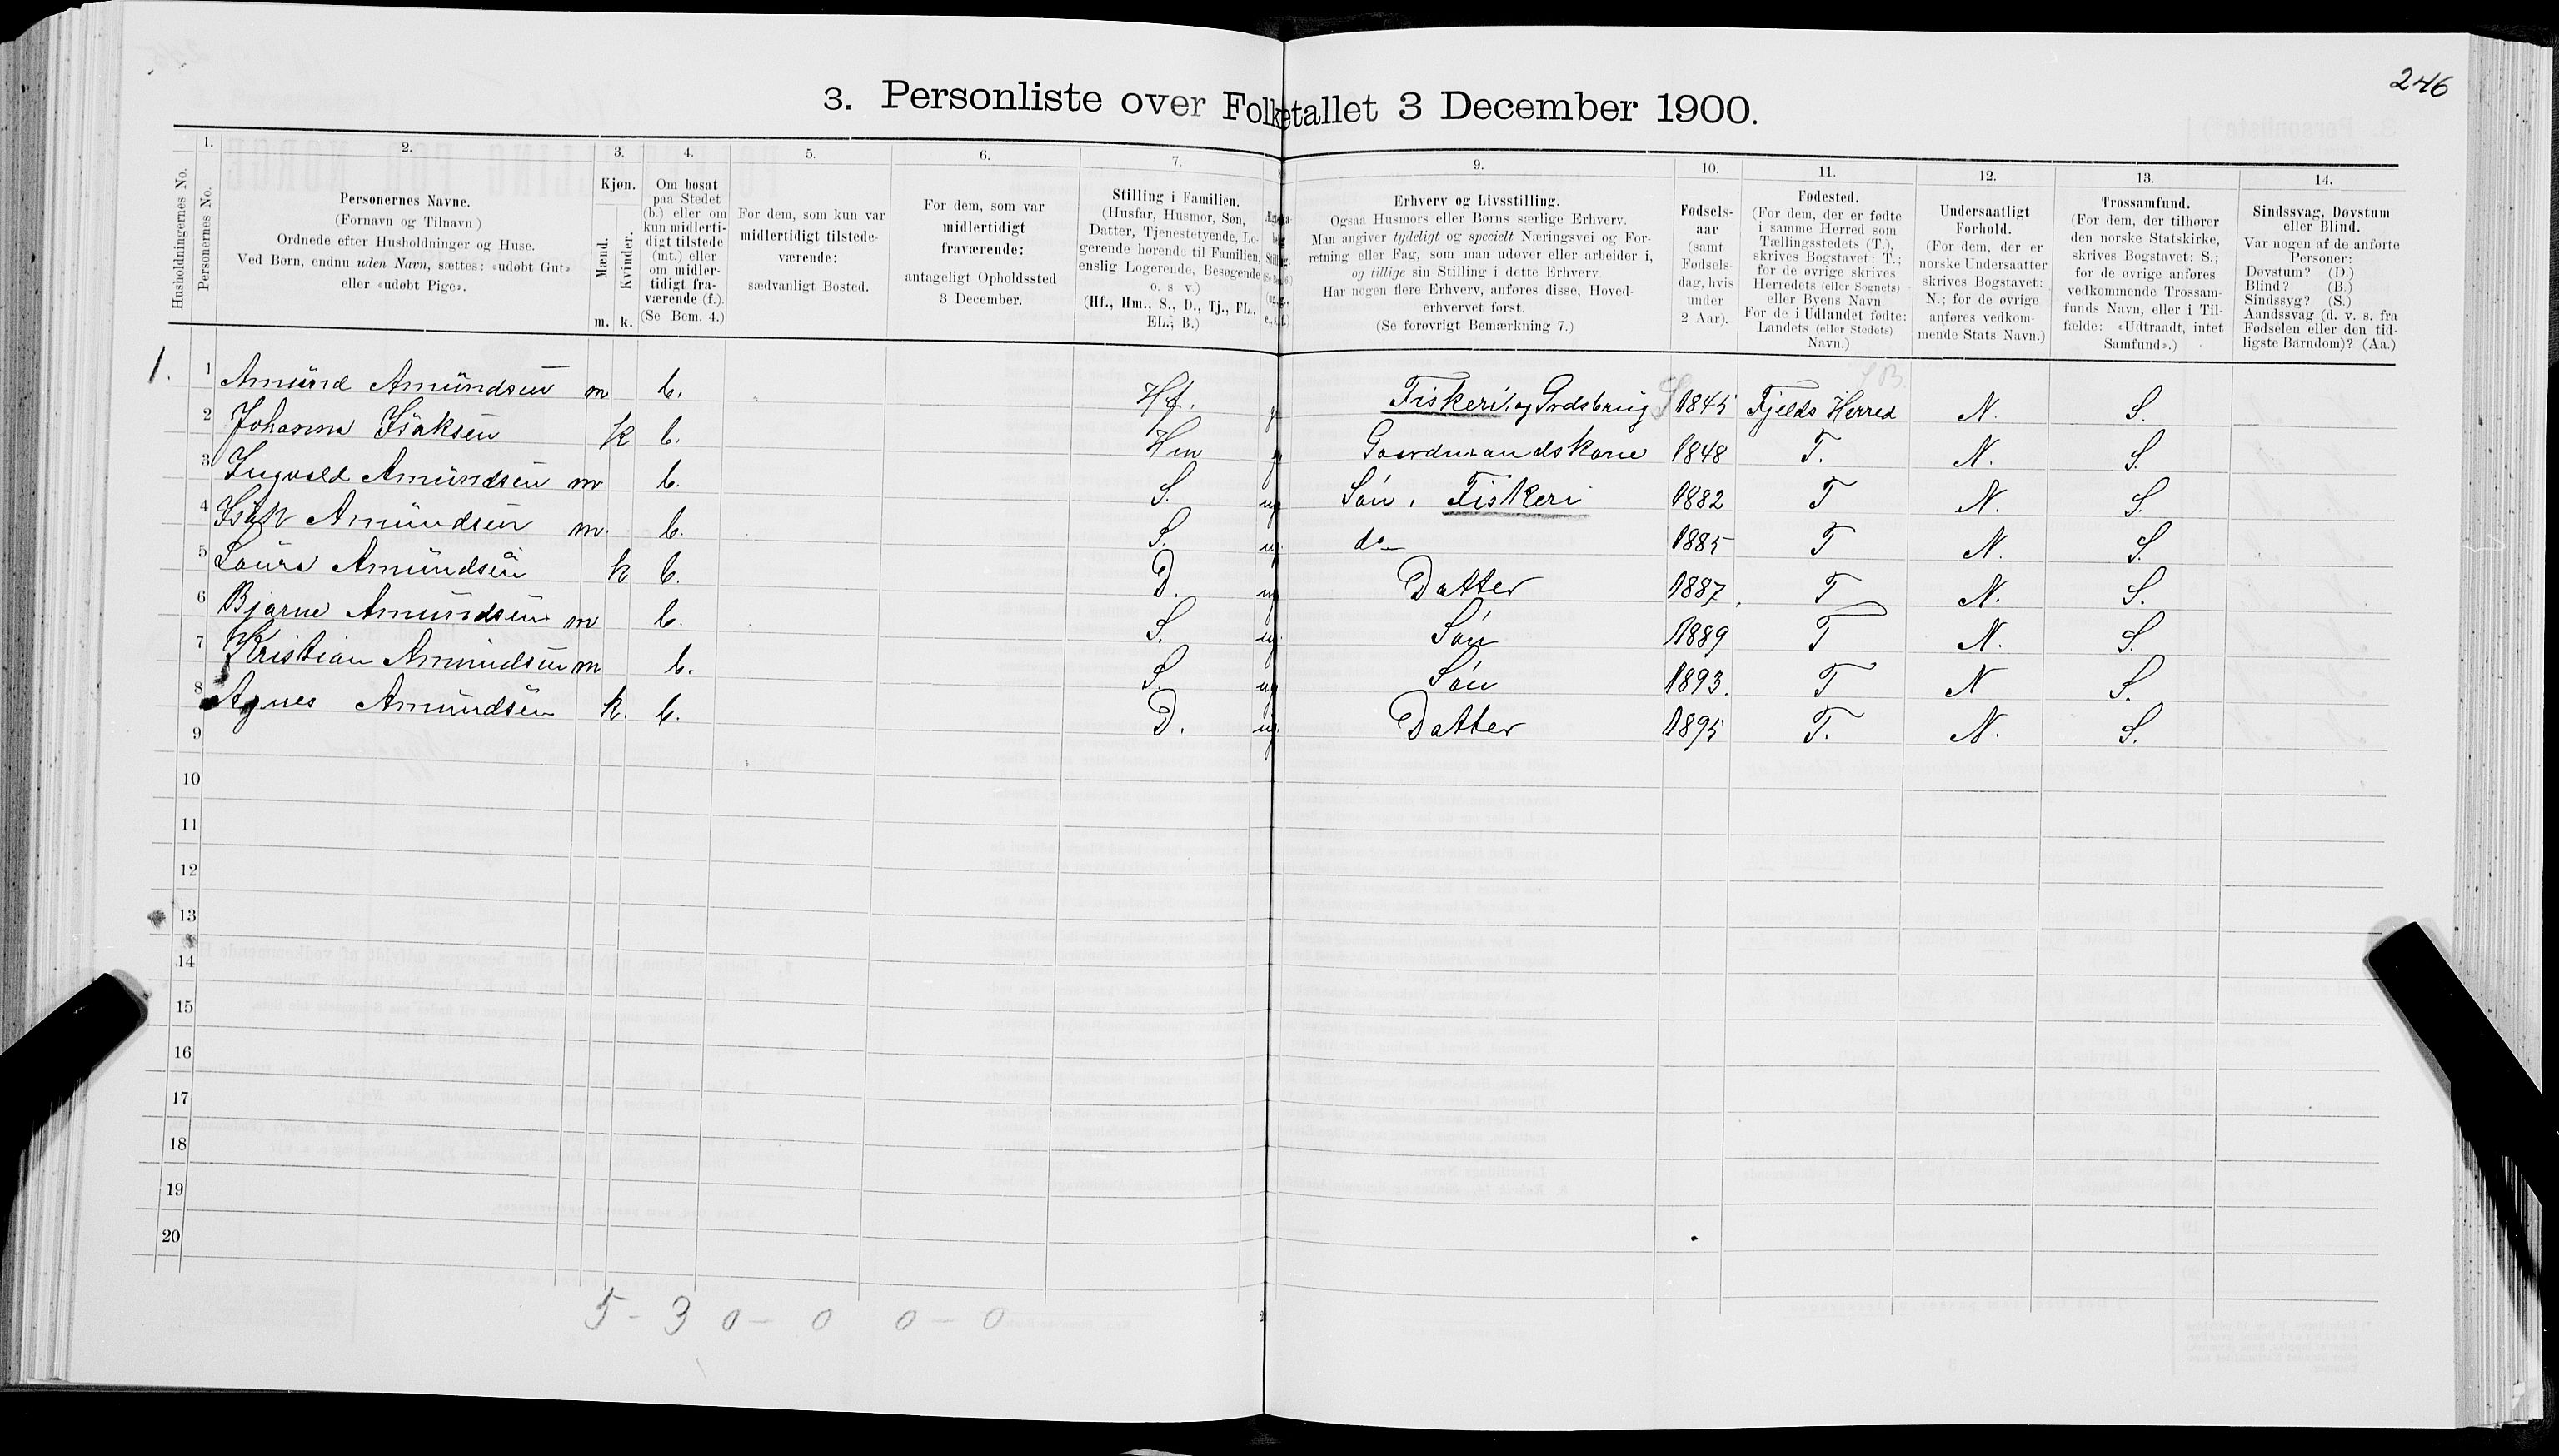 246
3. Personliste over Folketallet 3 December 1900.
1. 2. 3. 4. 5. 6. 7. 9. 10. 11. 12. 13. 14.
Husholdningernes No.
Personernes No.
Personernes Navne.
(Fornavn og Tilnavn)
Ordnede efter Husholdninger og Huse.
Ved Børn, endnu uden Navn, sættes: «udøbt Gut»
eller «udøbt Pige».
Kjøn.
Mænd.
Kvinder.
m. k.
Om bosat
paa Stedet
(b.) eller om
kun midlerti-
digt tilstede
(mt.) eller
om midler-
tidigt fra-
værende (f.).
(Se Bem. 4.)
For dem, som kun var
midlertidigt tilstede-
værende:
sædvanligt Bosted.
For dem, som var
midlertidigt
fraværende:
antageligt Opholdssted
3 December.
Stilling i Familien.
(Husfar, Husmor, Søn,
Datter, Tjenestetyende, Lo-
gerende hørende til Familien,
enslig Logerende, Besøgende
o. s v.)
(Hf., Hm., S., D., Tj., FL.,
EL.; B.)
Erhverv og Livsstilling.
Ogsaa Husmors eller Børns særlige Erhverv.
Man angiver tydeligt og specielt Næringsvei og For-
retning eller Fag, som man udøver eller arbeider i,
og tillige sin Stilling i dette Erhverv.
Har nogen flere Erhverv, anføres disse, Hoved-
erhvervet først.
(Se forøvrigt Bemærkning 7.)
Fødsels-
aar
(samt
Fødsels-
dag, hvis
under
2 Aar).
Fødested.
(For dem, der er fødte
i samme Herred som
Tællingsstedets (T.),
skrives Bogstavet: T.;
for de øvrige skrives
Herredets (eller Sognets)
eller Byens Navn
For de i Udlandet fødte:
Landets (eller Stedets)
Navn.)
Undersaatligt
Forhold.
(For dem, der er
norske Undersaatter
skrives Bogstavet:
N.; for de øvrige
anføres vedkom-
mende Stats Navn.)
Trossamfund.
(For dem, der tilhører
den norske Statskirke,
skrives Bogstavet: S.;
for de øvrige anføres
vedkommende Trossam-
funds Navn, eller i Til-
fælde: «Udtraadt, intet
Samfund».)
Sindssvag, Døvstum
eller Blind.
Var nogen af de anførte
Personer:
Døvstum? (D.)
Blind? (B.)
Sindssyg? (S.)
Aandssvag (d. v. s. fra
Fødselen eller den tid-
ligste Barndom)? (Aa.)
1. 1 Amund Amundsen m b. Hf. g Fiskeri, og Grdsbrug 1845 Fjelds Herred N. S.
2 Johanna Isaksen k b. Hm g Gaardmandskone 1848 T. N. S.
3 Ingvald Amundsen m b. S. ug Søn, Fiskeri 1882 T N. S.
4 Isak Amundsen m. b. S. ug. do 1885 T N. S.
5 Laura Amundsen k b. D. ug Datter 1887. T N. S.
6 Bjarne Amundsen m b. S. ug. Søn 1889 T N. S.
7 Kristian Amundsen m b. S. ug Søn 1893. T N S.
8 Agnes Amundsen k. b. D. ug. Datter 1895 T. N. S.
9
10
11
12
13
14
15
16
17
18
19
20
5 - 3 0 - 0 0 - 0